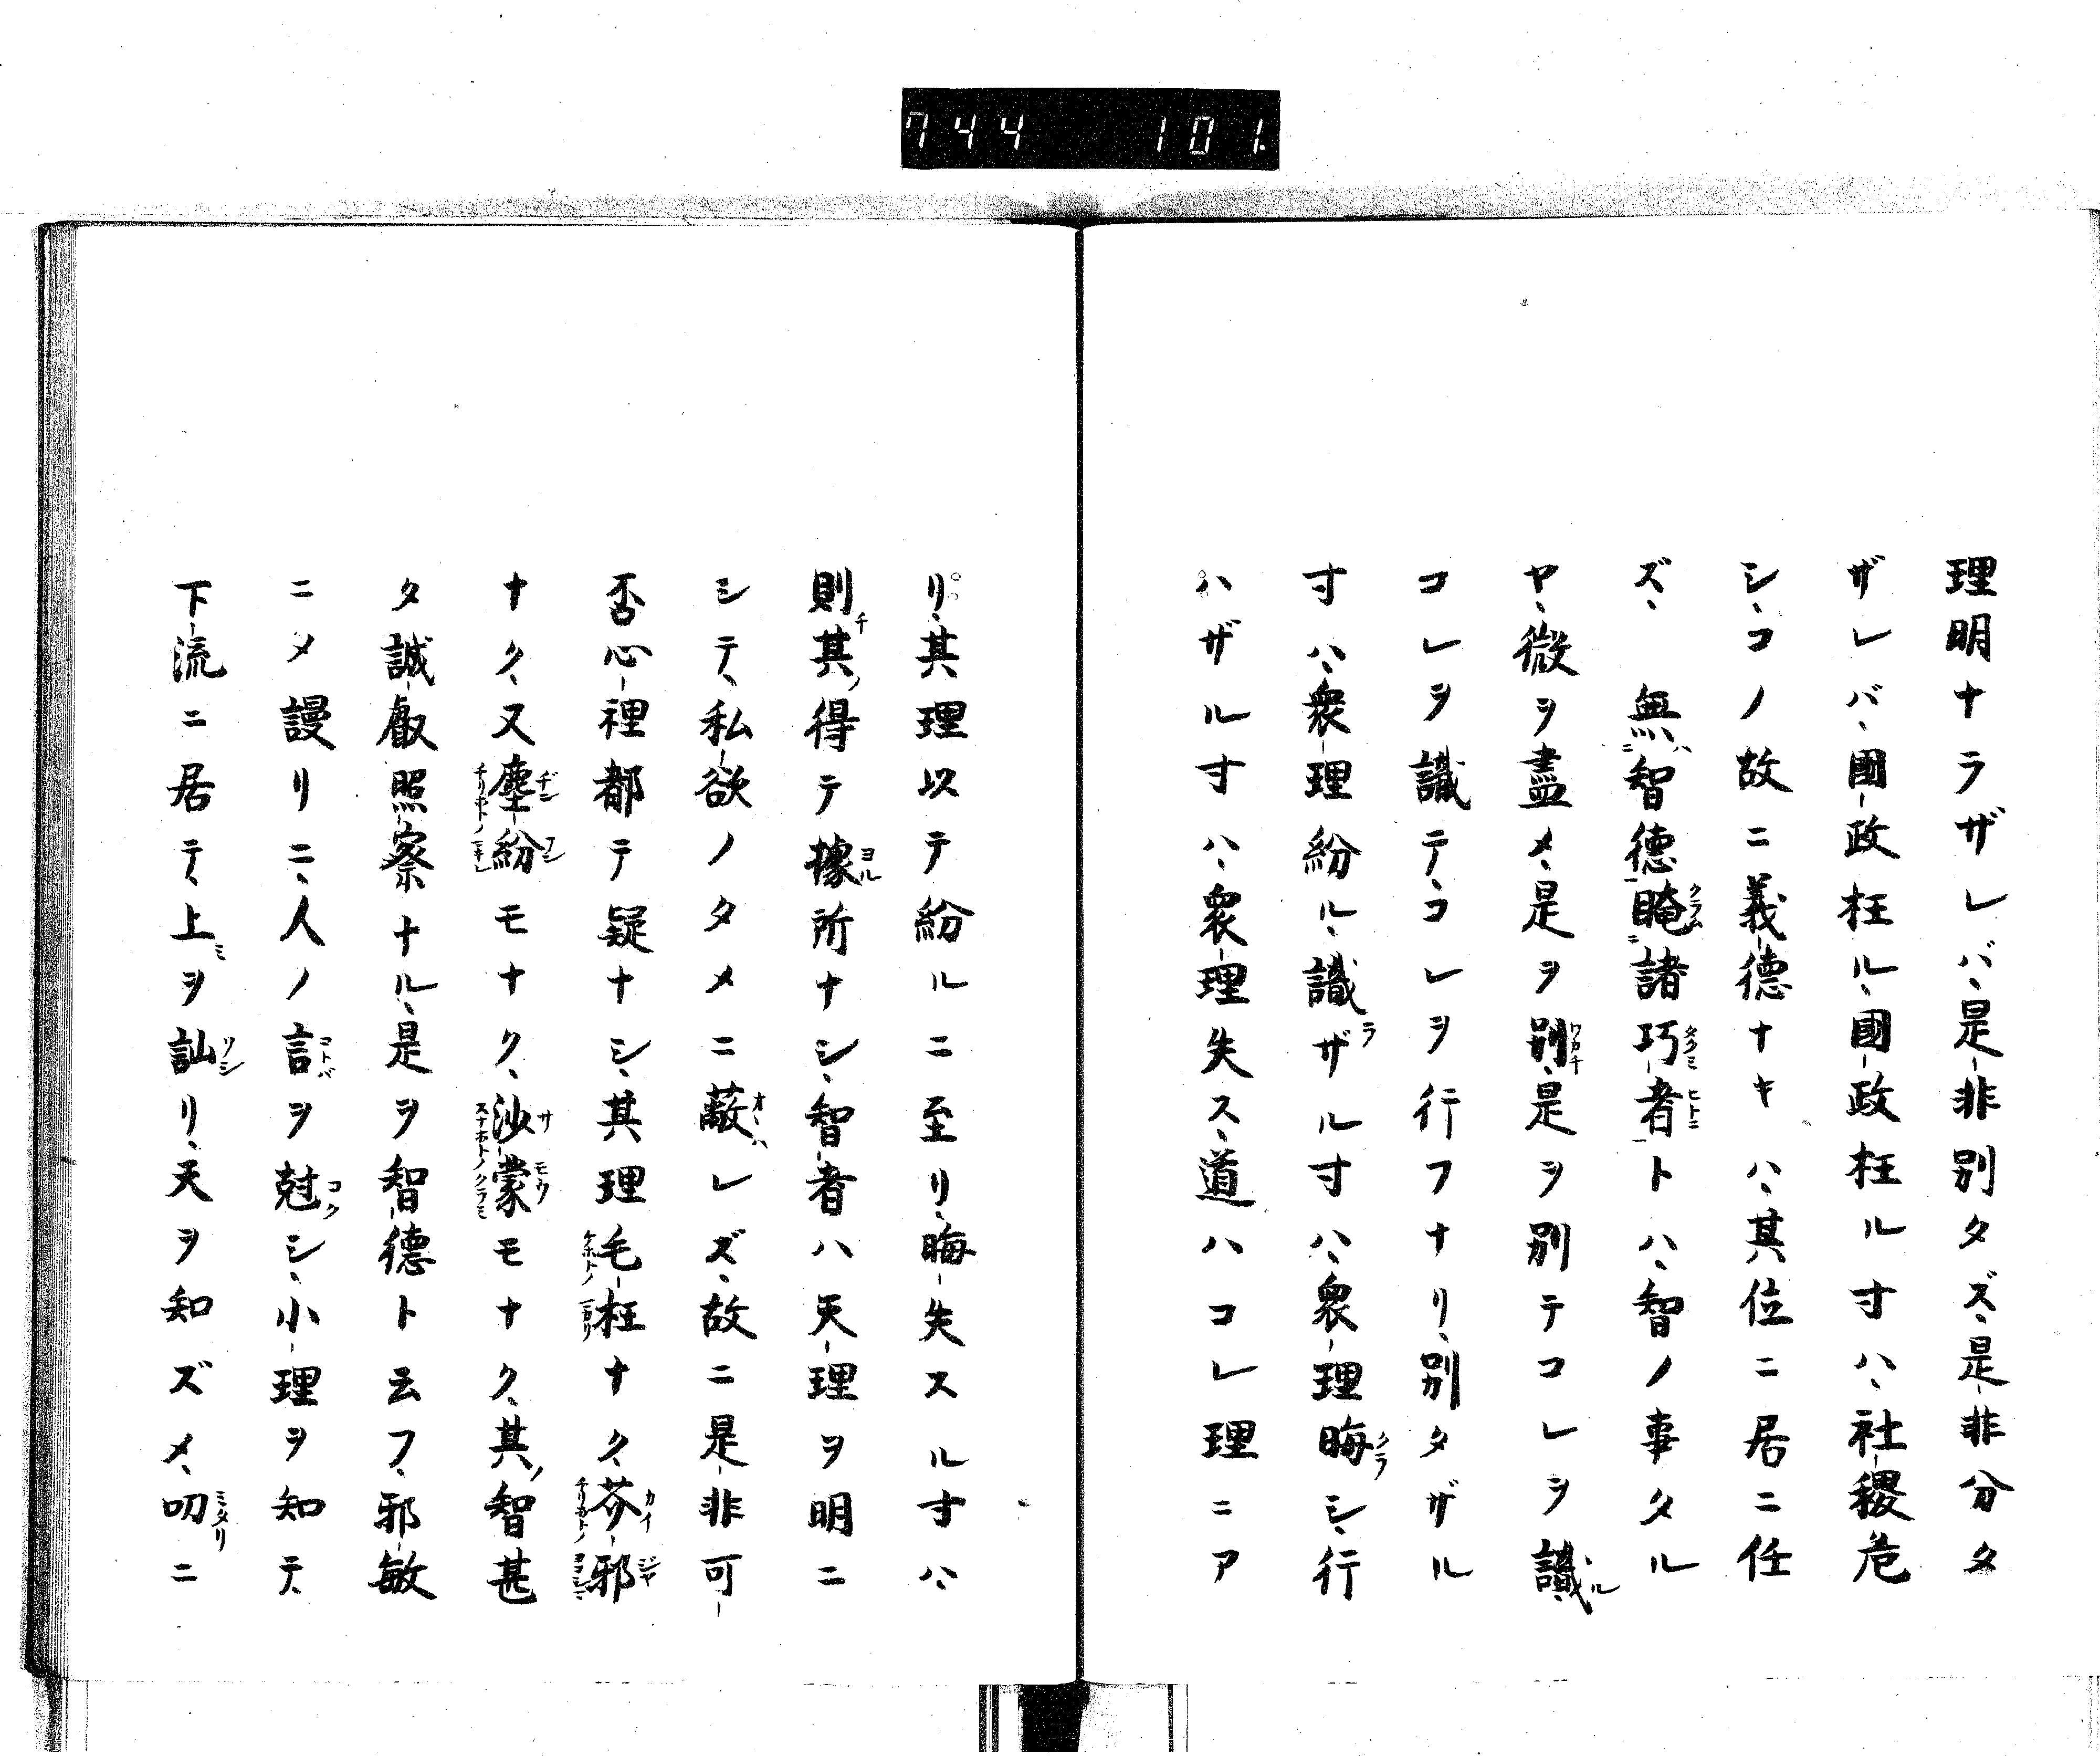 744 101.
理明ナラザレバ、是非別タズ、是非分タ
ザレバ、國政枉ル、國政枉ル寸ハ、社稷危
シ、コノ故ニ義德ナキハ、其位ニ居ニ任
ズ、 無智德晻諸巧者トハ、智ノ事タル
ヤ、微ヲ盡メ、是ヲ別、是ヲ別テコレヲ識
コレヲ識テ、コレヲ行フナリ、別タザル
寸ハ、衆理紛ル、識ザル寸ハ、衆理晦シ、行
ハザル寸ハ、衆理失ス、道ハコレ理ニア
リ、其理以テ紛ルニ至リ、晦失スル寸ハ、
則其得テ據所ナシ、智者ハ天理ヲ明ニ
シテ、私欲ノタメニ蔽レズ、故ニ是非可
否心裡都テ疑ナシ、其理毛枉ナク、芥邪
ナク、又塵紛モナク、沙蒙モナク、其智甚
タ誠叡照察ナル、是ヲ智德ト云フ、邪敏
ニメ謾リニ、人ノ言ヲ尅シ、小理ヲ知テ、
下流ニ居テ、上ヲ訕リ、天ヲ知ズメ、叨ニ